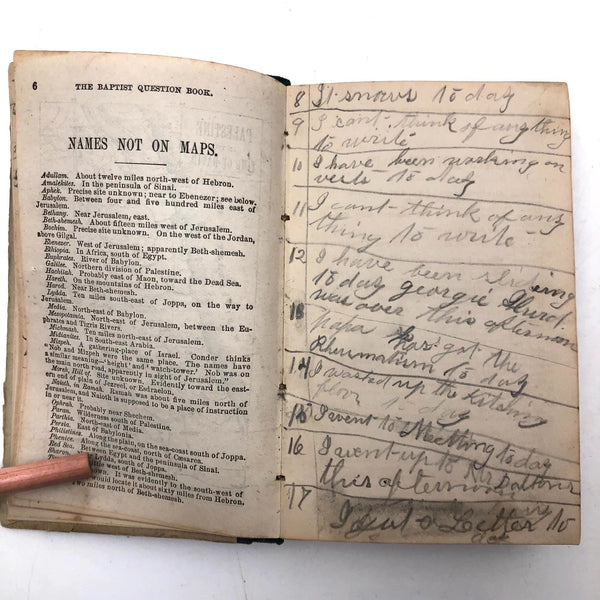 6 THE BAPTIST QUESTION BOOK.
NAMES NOT ON MAPS.
Adullam. About twelve miles north-west of Hebron.
Amalekites. In the peninsula of Sinai.
Aphek. Precise site unknown; near to Ebenezer; see below.
Babylon. Between four and five hundred miles east of
Jerusalem.
Bethany. Near Jerusalem, east.
Beth-shemesh. About fifteen miles west of Jerusalem.
Bochim. Precise site unknown. On the west of the Jordan,
above Gilgal.
Ebenezer. West of Jerusalem; apparently Beth-shemesh.
Ethiopia. In Africa, south of Egypt.
Euphrates. River of Babylon.
Galilee. Northern division of Palestine.
Hachilah. Probably east of Maon, toward the Dead Sea.
Hareth. On the mountains of Hebron.
Harod. Near Beth-shemesh.
Lydda. Ten miles south-east of Joppa, on the way to
Jerusalem.
Media. North-east of Babylon.
Mesopotamia. North-east of Jerusalem, between the Eu-
phrates and Tigris Rivers.
Michmash. Ten miles north of Jerusalem.
Midianites. South-east in Arabia.
Mizpeh. A gathering-place of Israel. Conder thinks
Nob and Mizpeh were the same place. The names have
a similar meaning—"height" and "watch-tower." Nob was on
the main north road, apparently in sight of Jerusalem."
Moreh, Hill of. Site unknown. Evidently toward the east-
ern end of plain of Jezreel, or Esdraelon.
Naioth, in Ramah. Ramah was about five miles north of
Jerusalem, and Naioth is supposed to be a place of instruction
in or near it.
Ophrah. Probably near Shechem.
Paran. Wilderness south of Palestine.
Parthia. North-east of Media.
Persia. East of Babylonia.
Philistines. Along the plain, on the sea-coast south of Joppa.
Phenice. Along the sea-coast, north of Cæsarea.
Red Sea. Between Egypt and the peninsula of Sinai.
Sharon. Lydda, south of Joppa.
west of Beth-shemesh.
own. It was evidently to the south-west of
would locate it about sixty miles from Hebron.
Two miles north of Beth-shemesh.
8 It snows to day
9 I cant think of any thing
to write
10 I have been working on
veils to day
11 I cant think of any
thing to write
12 I have been
to day georgie
was over this afternoon
13 papa has got the
Rheumatism to day
14 I washed up the kitching
floor to day
15 I went to Meetting to day
16 I went up to Mr Daltons
this afternoon
17 I got a Letter to